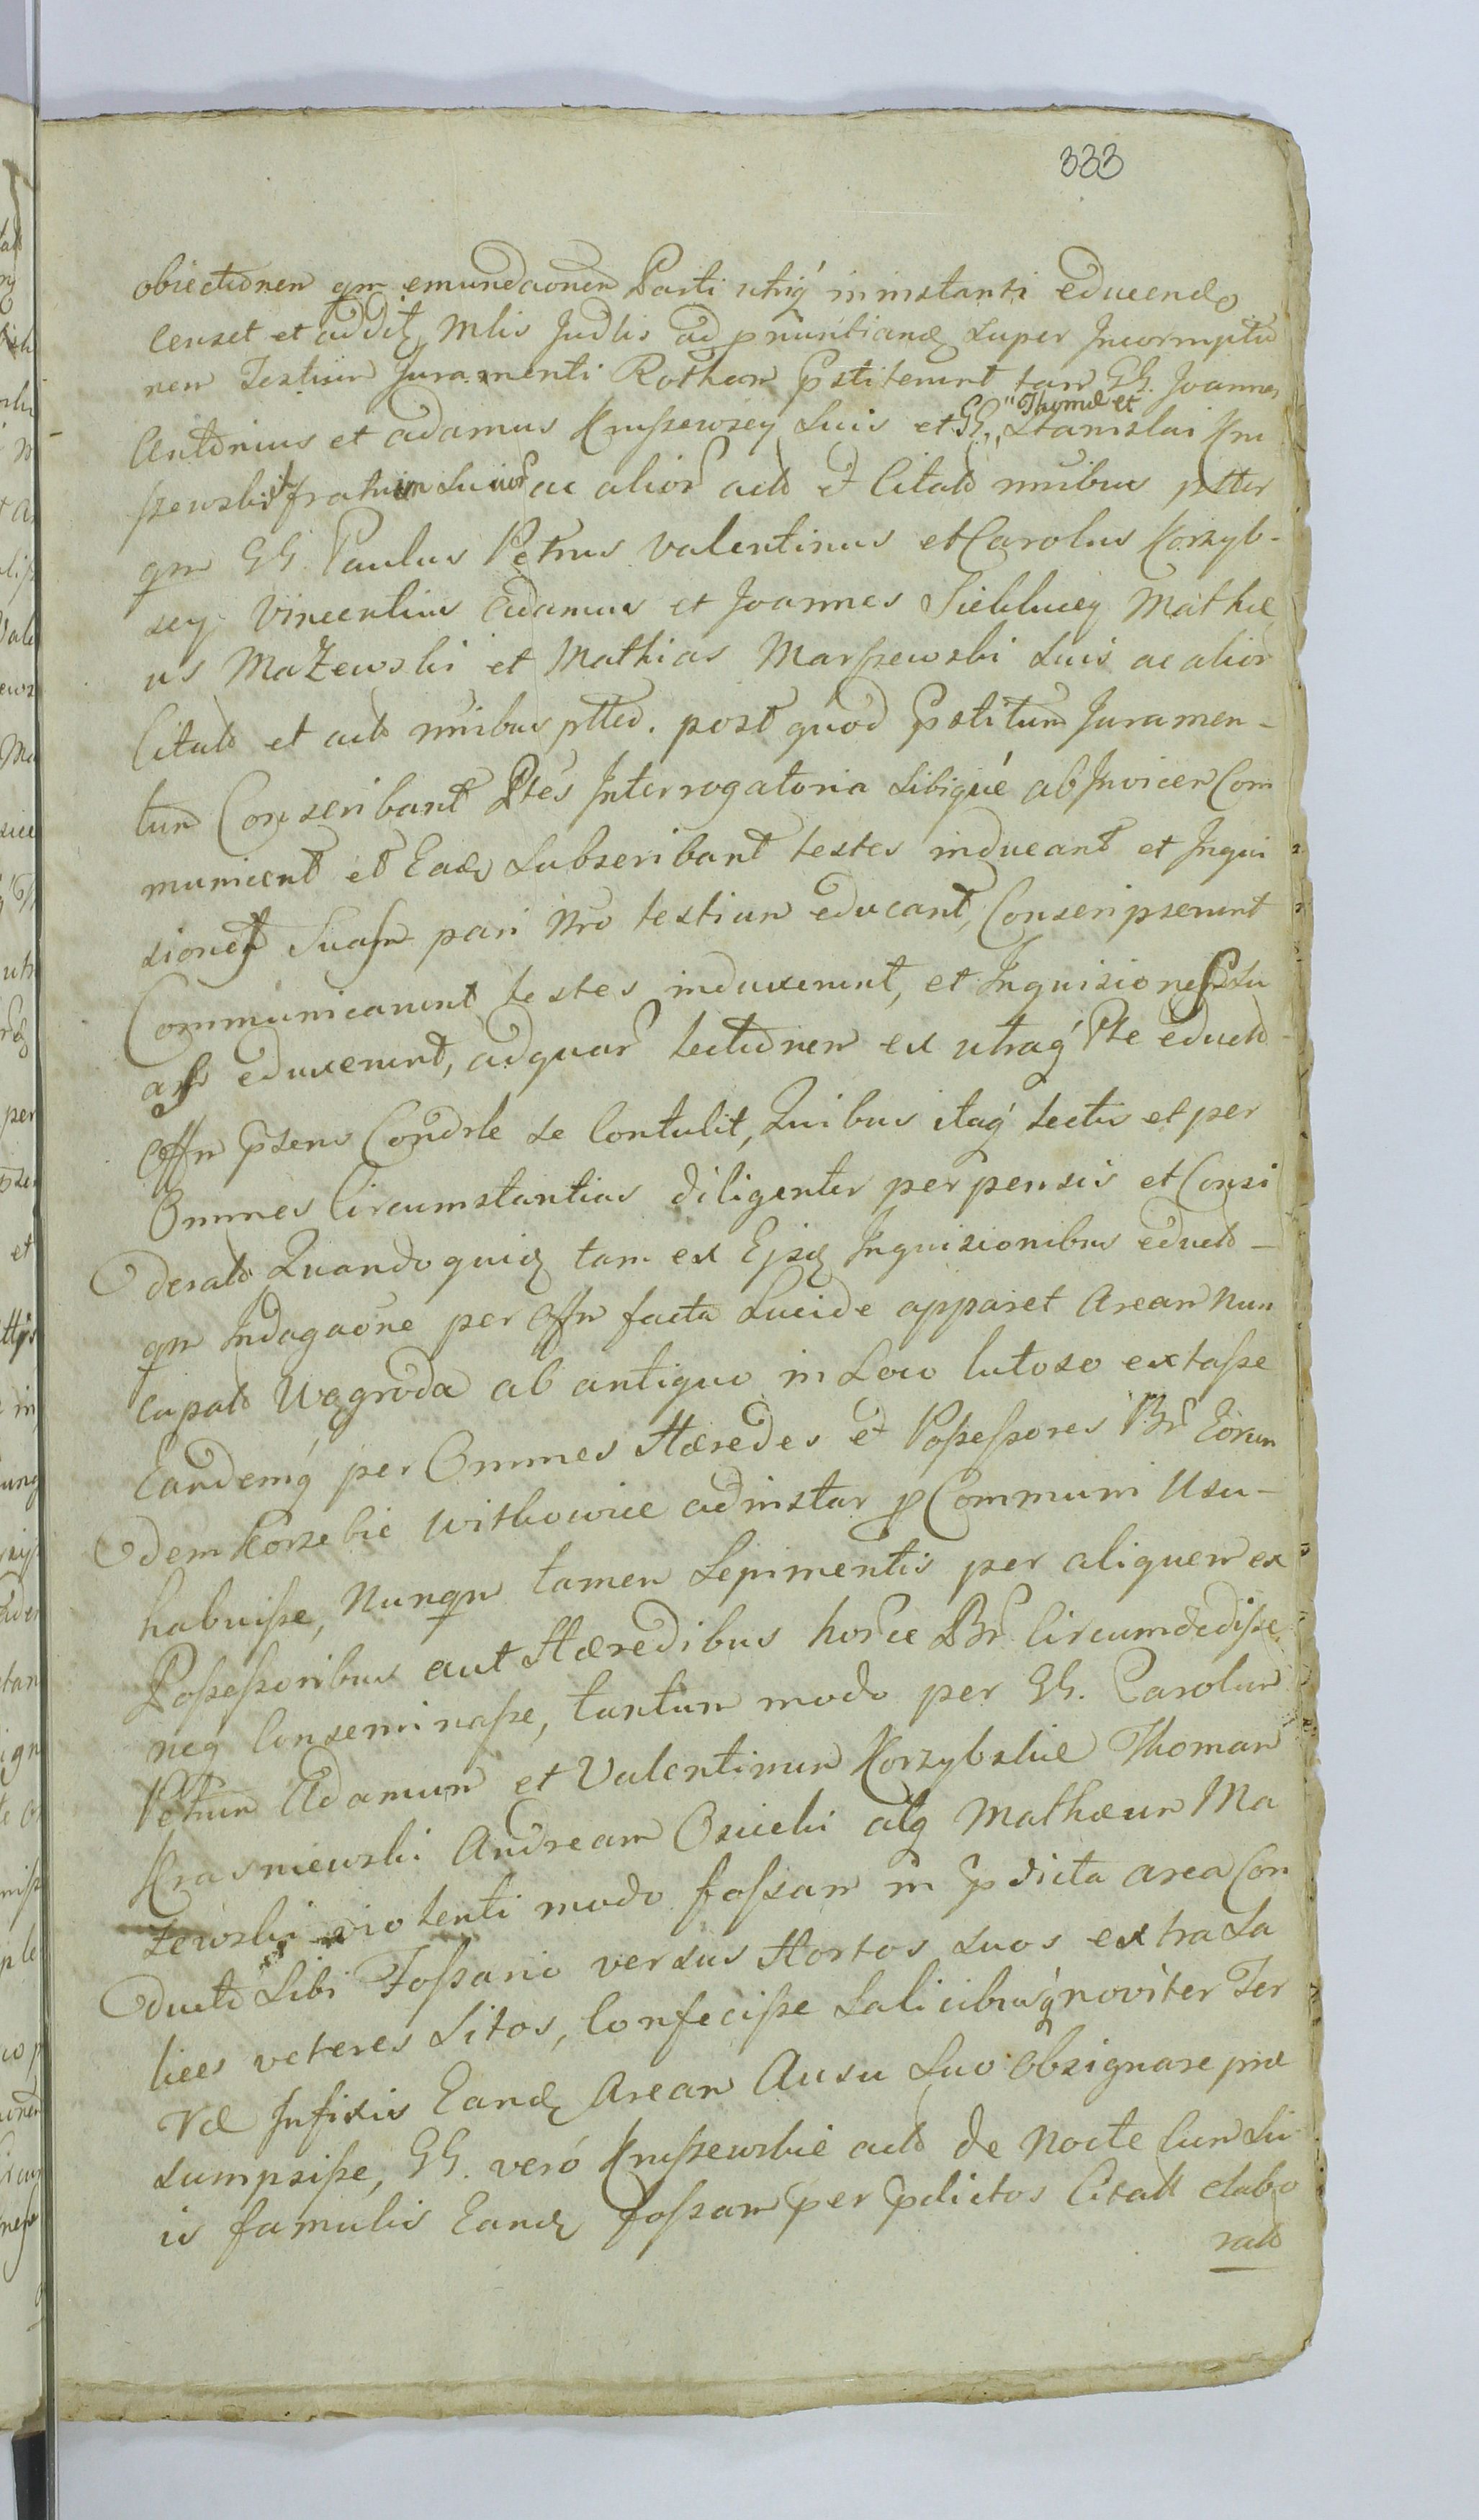 333
obiectionem qm emundaonem Parti utriq́ in instanti educendo
Censet et addit Mlis Judlis ad pnuntiand super Incorruptio
nem Testium Juramenti Rotham pstiterunt tam GG. Joannes
Antonius et Adamus Kruszewscy suis et GG. "Thomæ et" Stanislai Kru
szewskich fratrum suior ac alior acto et Citato nnibus ptter
qm GG. Paulus Petrus Valentinus et Carolus Korzyb-
scy Vincentius Adamus et Joannes Sieklucey Mathæ
us Mazewski et Mathias Marszewski suis ac alior
Citato et acto nnibus ptted. post quod pstitum Juramen-
tum Conscribant Ptes Interrogatoria sibique ab Invicem Com
municent et Eade subscribant testes inducant et Inqui
sionem suam pari Nro testium educant, Conscripserunt
Communicarunt testes induxerunt, et Inquisiones su
as eduxerunt, ad quar lectionem ex utraq́ Pte educto
Offm psens Condrle se Contulit, Quibus itaq́ lectis et per
Omnes Circumstantias diligenter perpensis et Consi
derato Quandoquid tam ex Ejsd Inquisionibus educto-
qm Indagaone per Offm facta Lucide apparet Aream nun
cupato Wągroda ab antiquo in Loco lutoso extasse
Eandemq́ per Omnes Hæredes et Possessores Br Eorun
dem Korzebie Witkowice ad instar p Communi Usu-
habuisse, nunqm tamen Sepimentis per aliquem ex
Possessoribus aut Hæredibus horce Br Circumdedisse
neq Conseminasse, tantum modo per GG. Carolum
Petrum Adamum et Valentinum Korzybskie Thomam
Krasniewski Andream Osiecki atq Mathæum Ma
zewski violenti modo fossam in pdicta area Con
ducto Sibi Fossario versus Hortos suos extra Sa
lices veteres Sitos, Confecisse Salicibusq́ noviter Ter
ræ Infixis Eand Aream Ausu suo Obsignare præ
sumpsisse, GG. veró Kruszewskie acto de Nocte Cum su
is famulis Eand fossam per pdictos Citatt elabo
rato